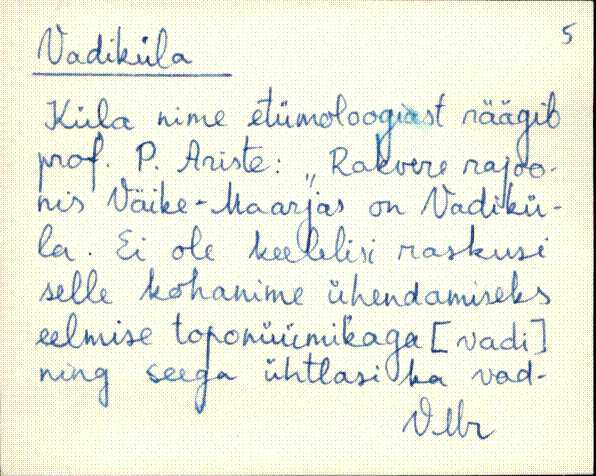 5
Vadiküla
Küla nime etümoloogiast räägib
prof. P. Ariste: „Rakvere rajoo-
nis Väike-Maarjas on Vadikü-
la. Ei ole keelelisi raskusi
selle kohanime ühendamiseks
eelmise toponüümikaga [vadi]
ning seega ühtlasi ka vad-